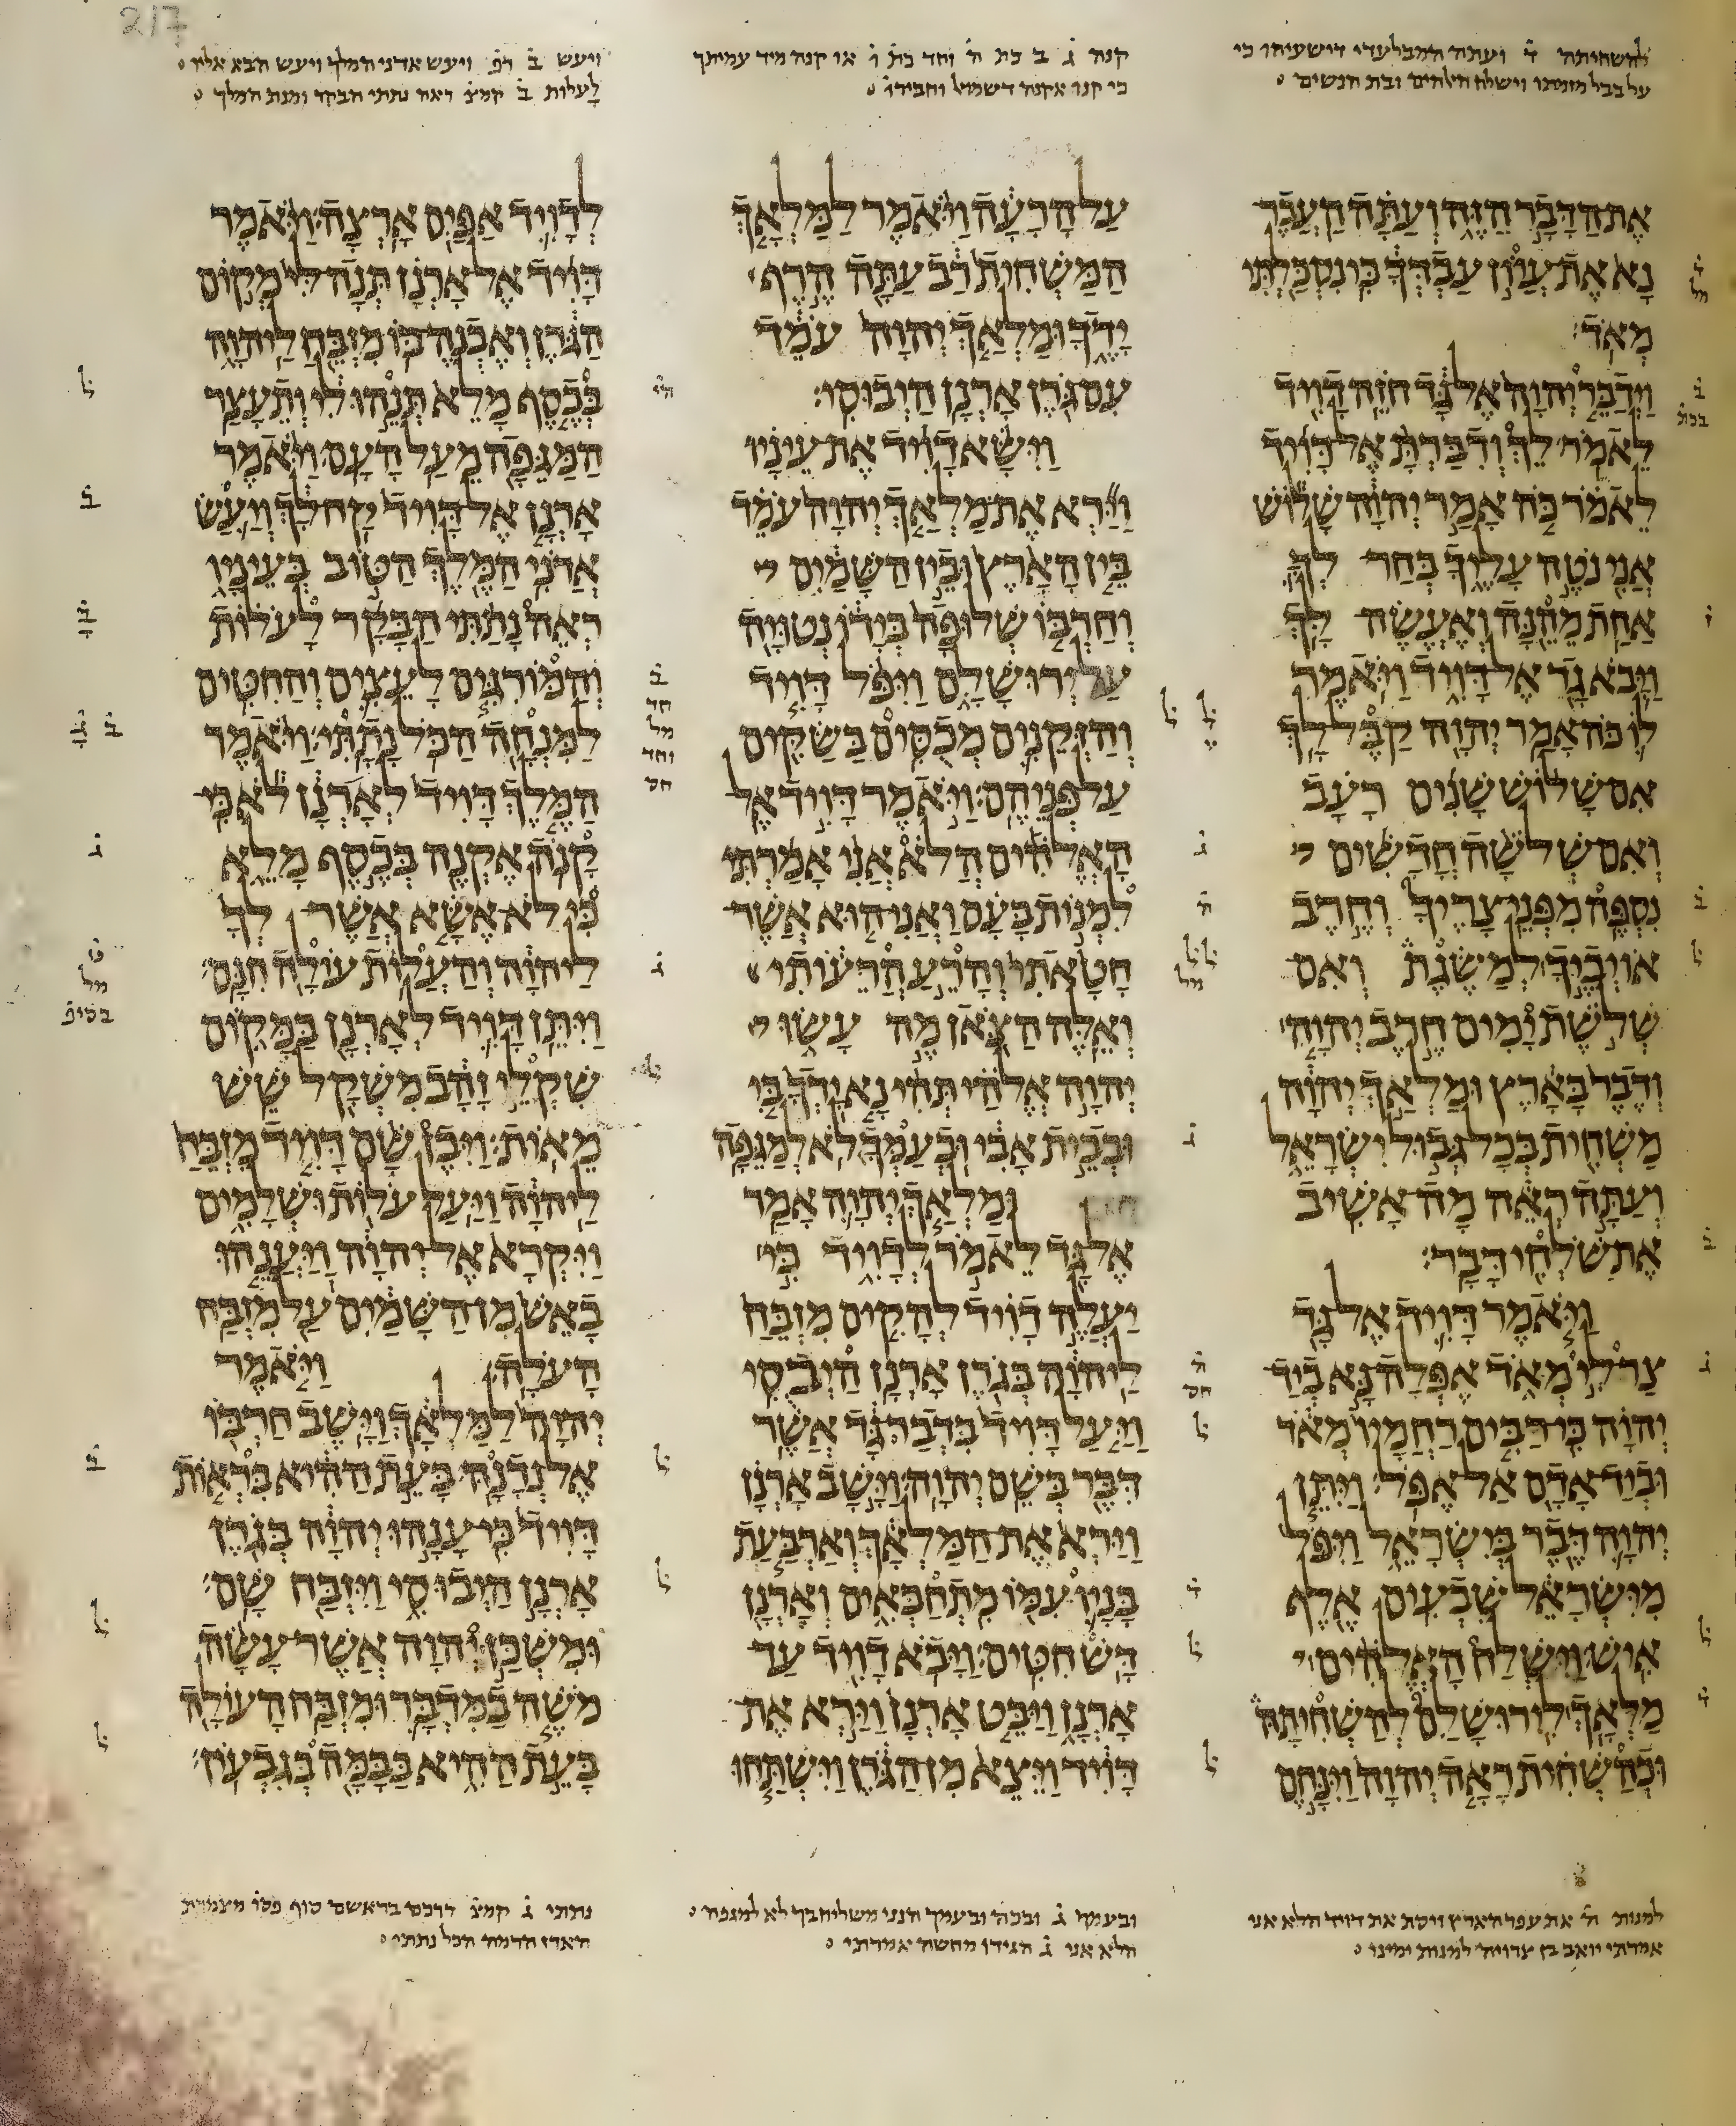 להשחיתה ד̇ ועתה המבלעדי דישעיהו כי
על בבל מזמתו וישלח אלהים ובת הנשים
קנה ג̇ ב בת ה̇ וחד בת ו̇ או קנה מיד עמיתך
כי קנו אקנה דשמואל וחבירו̇
ויעש ב̇ רפ̇ ויעש אדני המלך ויעש הבא אליו
לעלות ב̇ קמצ̇ ראה נתתי הבקר ומנת המלך
אֶת הַדָּבָר הַזֶּה וְעַתָּה הַעֲבֶר
נָא אֶת עֲווֹן עַבְדְּךָ כִּי נִסְכַּלְתִּי
מְאֹד׃
וַיְדַבֵּר יְהוָה אֶל גָּד חֹזֵה דָוִיד
לֵאמֹר׃ לֵךְ וְדִבַּרְתָּ אֶל דָּוִיד
לֵאמֹר כֹּה אָמַר יְהוָה שָׁלוֹשׁ
אֲנִי נֹטֶה עָלֶיךָ בְּחַר לְךָ
אַחַת מֵהֵנָּה וְאֶעֱשֶׂה לָּךְ׃
וַיָּבֹא גָד אֶל דָּוִיד וַיֹּאמֶר
לוֹ כֹּה אָמַר יְהוָה קַבֶּל לָךְ׃
אִם שָׁלוֹשׁ שָׁנִים רָעָב
וְאִם שְׁלֹשָׁה חֳדָשִׁים
נִסְפֶּה מִפְּנֵי צָרֶיךָ וְחֶרֶב
אוֹיְבֶיךָ לְמַשֶּׂגֶת וְאִם
שְׁלֹשֶׁת יָמִים חֶרֶב יְהוָה
וְדֶבֶר בָּאָרֶץ וּמַלְאַךְ יְהוָה
מַשְׁחִית בְּכָל גְּבוּל יִשְׂרָאֵל
וְעַתָּה רְאֵה מָה אָשִׁיב
אֶת שֹׁלְחִי דָּבָר׃
וַיֹּאמֶר דָּוִיד אֶל גָּד
צַר לִי מְאֹד אֶפְּלָה נָּא בְיַד
יְהוָה כִּי רַבִּים רַחֲמָיו מְאֹד
וּבְיַד אָדָם אַל אֶפֹּל׃ וַיִּתֵּן
יְהוָה דֶּבֶר בְּיִשְׂרָאֵל וַיִּפֹּל
מִיִּשְׂרָאֵל שִׁבְעִים אֶלֶף
אִישׁ׃ וַיִּשְׁלַח הָאֱלֹהִים
מַלְאָךְ לִירוּשָׁלִַם לְהַשְׁחִיתָהּ
וּכְהַשְׁחִית רָאָה יְהוָה וַיִּנָּחֶם
עַל הָרָעָה וַיֹּאמֶר לַמַּלְאָךְ
הַמַּשְׁחִית רַב עַתָּה הֶרֶף
יָדֶךָ וּמַלְאַךְ יְהוָה עֹמֵד
עִם גֹּרֶן אָרְנָן הַיְבוּסִי׃
וַיִּשָּׂא דָוִיד אֶת עֵינָיו
וַיַּרְא אֶת מַלְאַךְ יְהוָה עֹמֵד
בֵּין הָאָרֶץ וּבֵין הַשָּׁמַיִם
וְחַרְבּוֹ שְׁלוּפָה בְּיָדוֹ נְטוּיָה
עַל יְרוּשָׁלִָם וַיִּפֹּל דָּוִיד
וְהַזְּקֵנִים מְכֻסִּים בַּשַּׂקִּים
עַל פְּנֵיהֶם׃ וַיֹּאמֶר דָּוִיד אֶל
הָאֱלֹהִים הֲלֹא אֲנִי אָמַרְתִּי
לִמְנוֹת בָּעָם וַאֲנִי הוּא אֲשֶׁר
חָטָאתִי וְהָרֵעַ הֲרֵעוֹתִי
וְאֵלֶּה הַצֹּאן מֶה עָשׂוּ
יְהוָה אֱלֹהַי תְּהִי נָא יָדְךָ בִּי
וּבְבֵית אָבִי וּבְעַמְּךָ לֹא לְמַגֵּפָה׃
וּמַלְאַךְ יְהוָה אָמַר
אֶל גָּד לֵאמֹר לְדָוִיד כִּי
יַעֲלֶה דָוִיד לְהָקִים מִזְבֵּחַ
לַיהוָה בְּגֹרֶן אָרְנָן הַיְבֻסִי׃
וַיַּעַל דָּוִיד בִּדְבַר גָּד אֲשֶׁר
דִּבֶּר בְּשֵׁם יְהוָה׃ וַיָּשָׁב אָרְנָן
וַיַּרְא אֶת הַמַּלְאָךְ וְאַרְבַּעַת
בָּנָיו עִמּוֹ מִתְחַבְּאִים וְאָרְנָן
דָּשׁ חִטִּים׃ וַיָּבֹא דָוִיד עַד
אָרְנָן וַיַּבֵּט אָרְנָן וַיַּרְא אֶת
דָּוִיד וַיֵּצֵא מִן הַגֹּרֶן וַיִּשְׁתַּחוּ
לְדָוִיד אַפַּיִם אָרְצָה׃ וַיֹּאמֶר
דָּוִיד אֶל אָרְנָן תְּנָה לִּי מְקוֹם
הַגֹּרֶן וְאֶבְנֶה בּוֹ מִזְבֵּחַ לַיהוָה
בְּכֶסֶף מָלֵא תְּנֵהוּ לִי וְתֵעָצַר
הַמַּגֵּפָה מֵעַל הָעָם׃ וַיֹּאמֶר
אָרְנָן אֶל דָּוִיד קַח לָךְ וְיַעַשׂ
אֲדֹנִי הַמֶּלֶךְ הַטּוֹב בְּעֵינָיו
רְאֵה נָתַתִּי הַבָּקָר לָעֹלוֹת
וְהַמּוֹרִגִּים לָעֵצִים וְהַחִטִּים
לַמִּנְחָה הַכֹּל נָתָתִּי׃ וַיֹּאמֶר
הַמֶּלֶךְ דָּוִיד לְאָרְנָן לֹא כִּי
קָנֹה אֶקְנֶה בְּכֶסֶף מָלֵא
כִּי לֹא אֶשָּׂא אֲשֶׁר לְךָ
לַיהוָה וְהַעֲלוֹת עוֹלָה חִנָּם׃
וַיִּתֵּן דָּוִיד לְאָרְנָן בַּמָּקוֹם
שִׁקְלֵי זָהָב מִשְׁקָל שֵׁשׁ
מֵאוֹת׃ וַיִּבֶן שָׁם דָּוִיד מִזְבֵּחַ
לַיהוָה וַיַּעַל עֹלוֹת וּשְׁלָמִים
וַיִּקְרָא אֶל יְהוָה וַיַּעֲנֵהוּ
בָאֵשׁ מִן הַשָּׁמַיִם עַל מִזְבַּח
הָעֹלָה׃ וַיֹּאמֶר
יְהוָה לַמַּלְאָךְ וַיָּשֶׁב חַרְבּוֹ
אֶל נְדָנָהּ׃ בָּעֵת הַהִיא בִּרְאוֹת
דָּוִיד כִּי עָנָהוּ יְהוָה בְּגֹרֶן
אָרְנָן הַיְבוּסִי וַיִּזְבַּח שָׁם׃
וּמִשְׁכַּן יְהוָה אֲשֶׁר עָשָׂה
מֹשֶׁה בַמִּדְבָּר וּמִזְבַּח הָעוֹלָה
בָּעֵת הַהִיא בַּבָּמָה בְּגִבְעוֹן׃
למנות ה̇ את עפר הארץ ויסת את דויד הלא אני
אמרתי יואב בן צרויה למנות ימינו
ובעמך ג̇ ובכה ובעמך הנני משליח בך לא למגפה
הלא אני ג̇ הגידו מחשה אמרתי
נתתי ג̇ קמצ̇ דרכם בראשם סוף פסו̇ מצמרת
הארז הרמה הכל נתתי